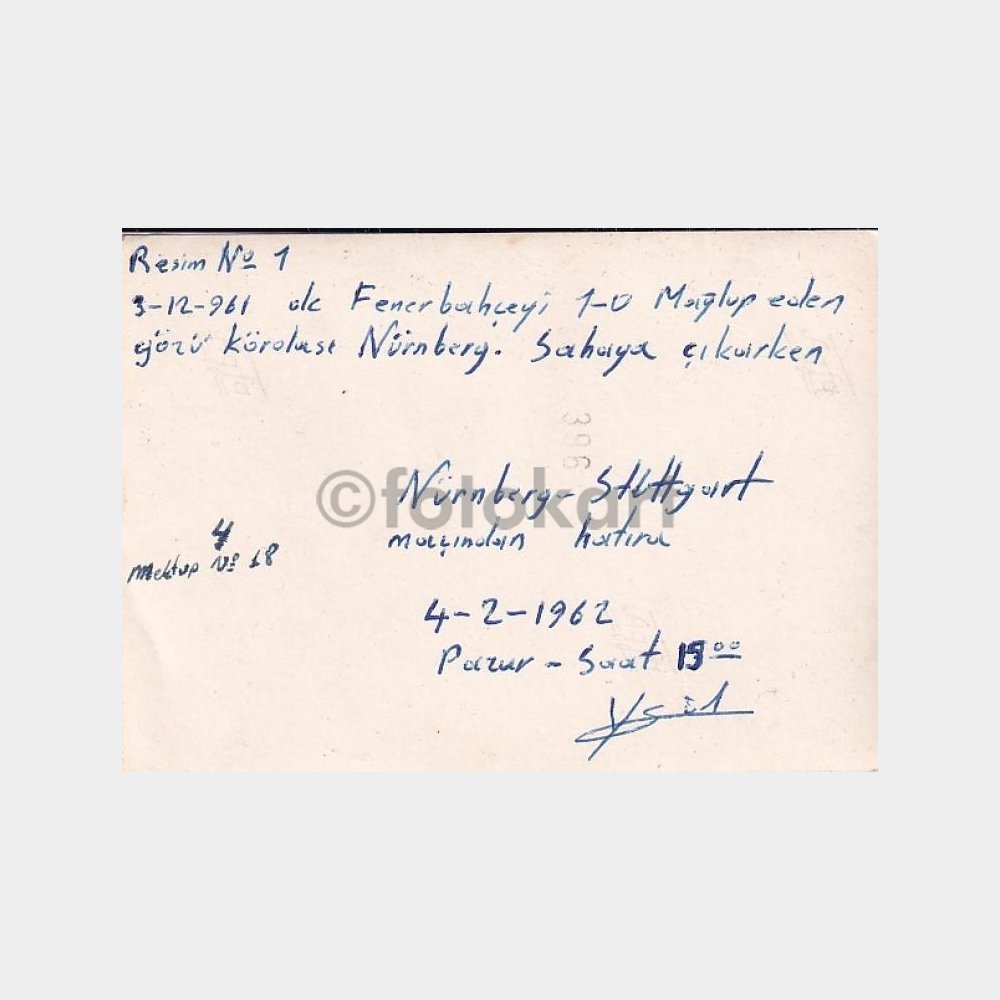 Resim No 1
3-12-961 de Fenerbahçeyi 1-0 Mağlup eden
gözü körolası Nürnberg. Sahaya çıkarken
396
Nürnberg - Stuttgart
©fotokart
maçından hatıra
4
Mektup No 18
4-2-1962
Pazar - Saat 15 00